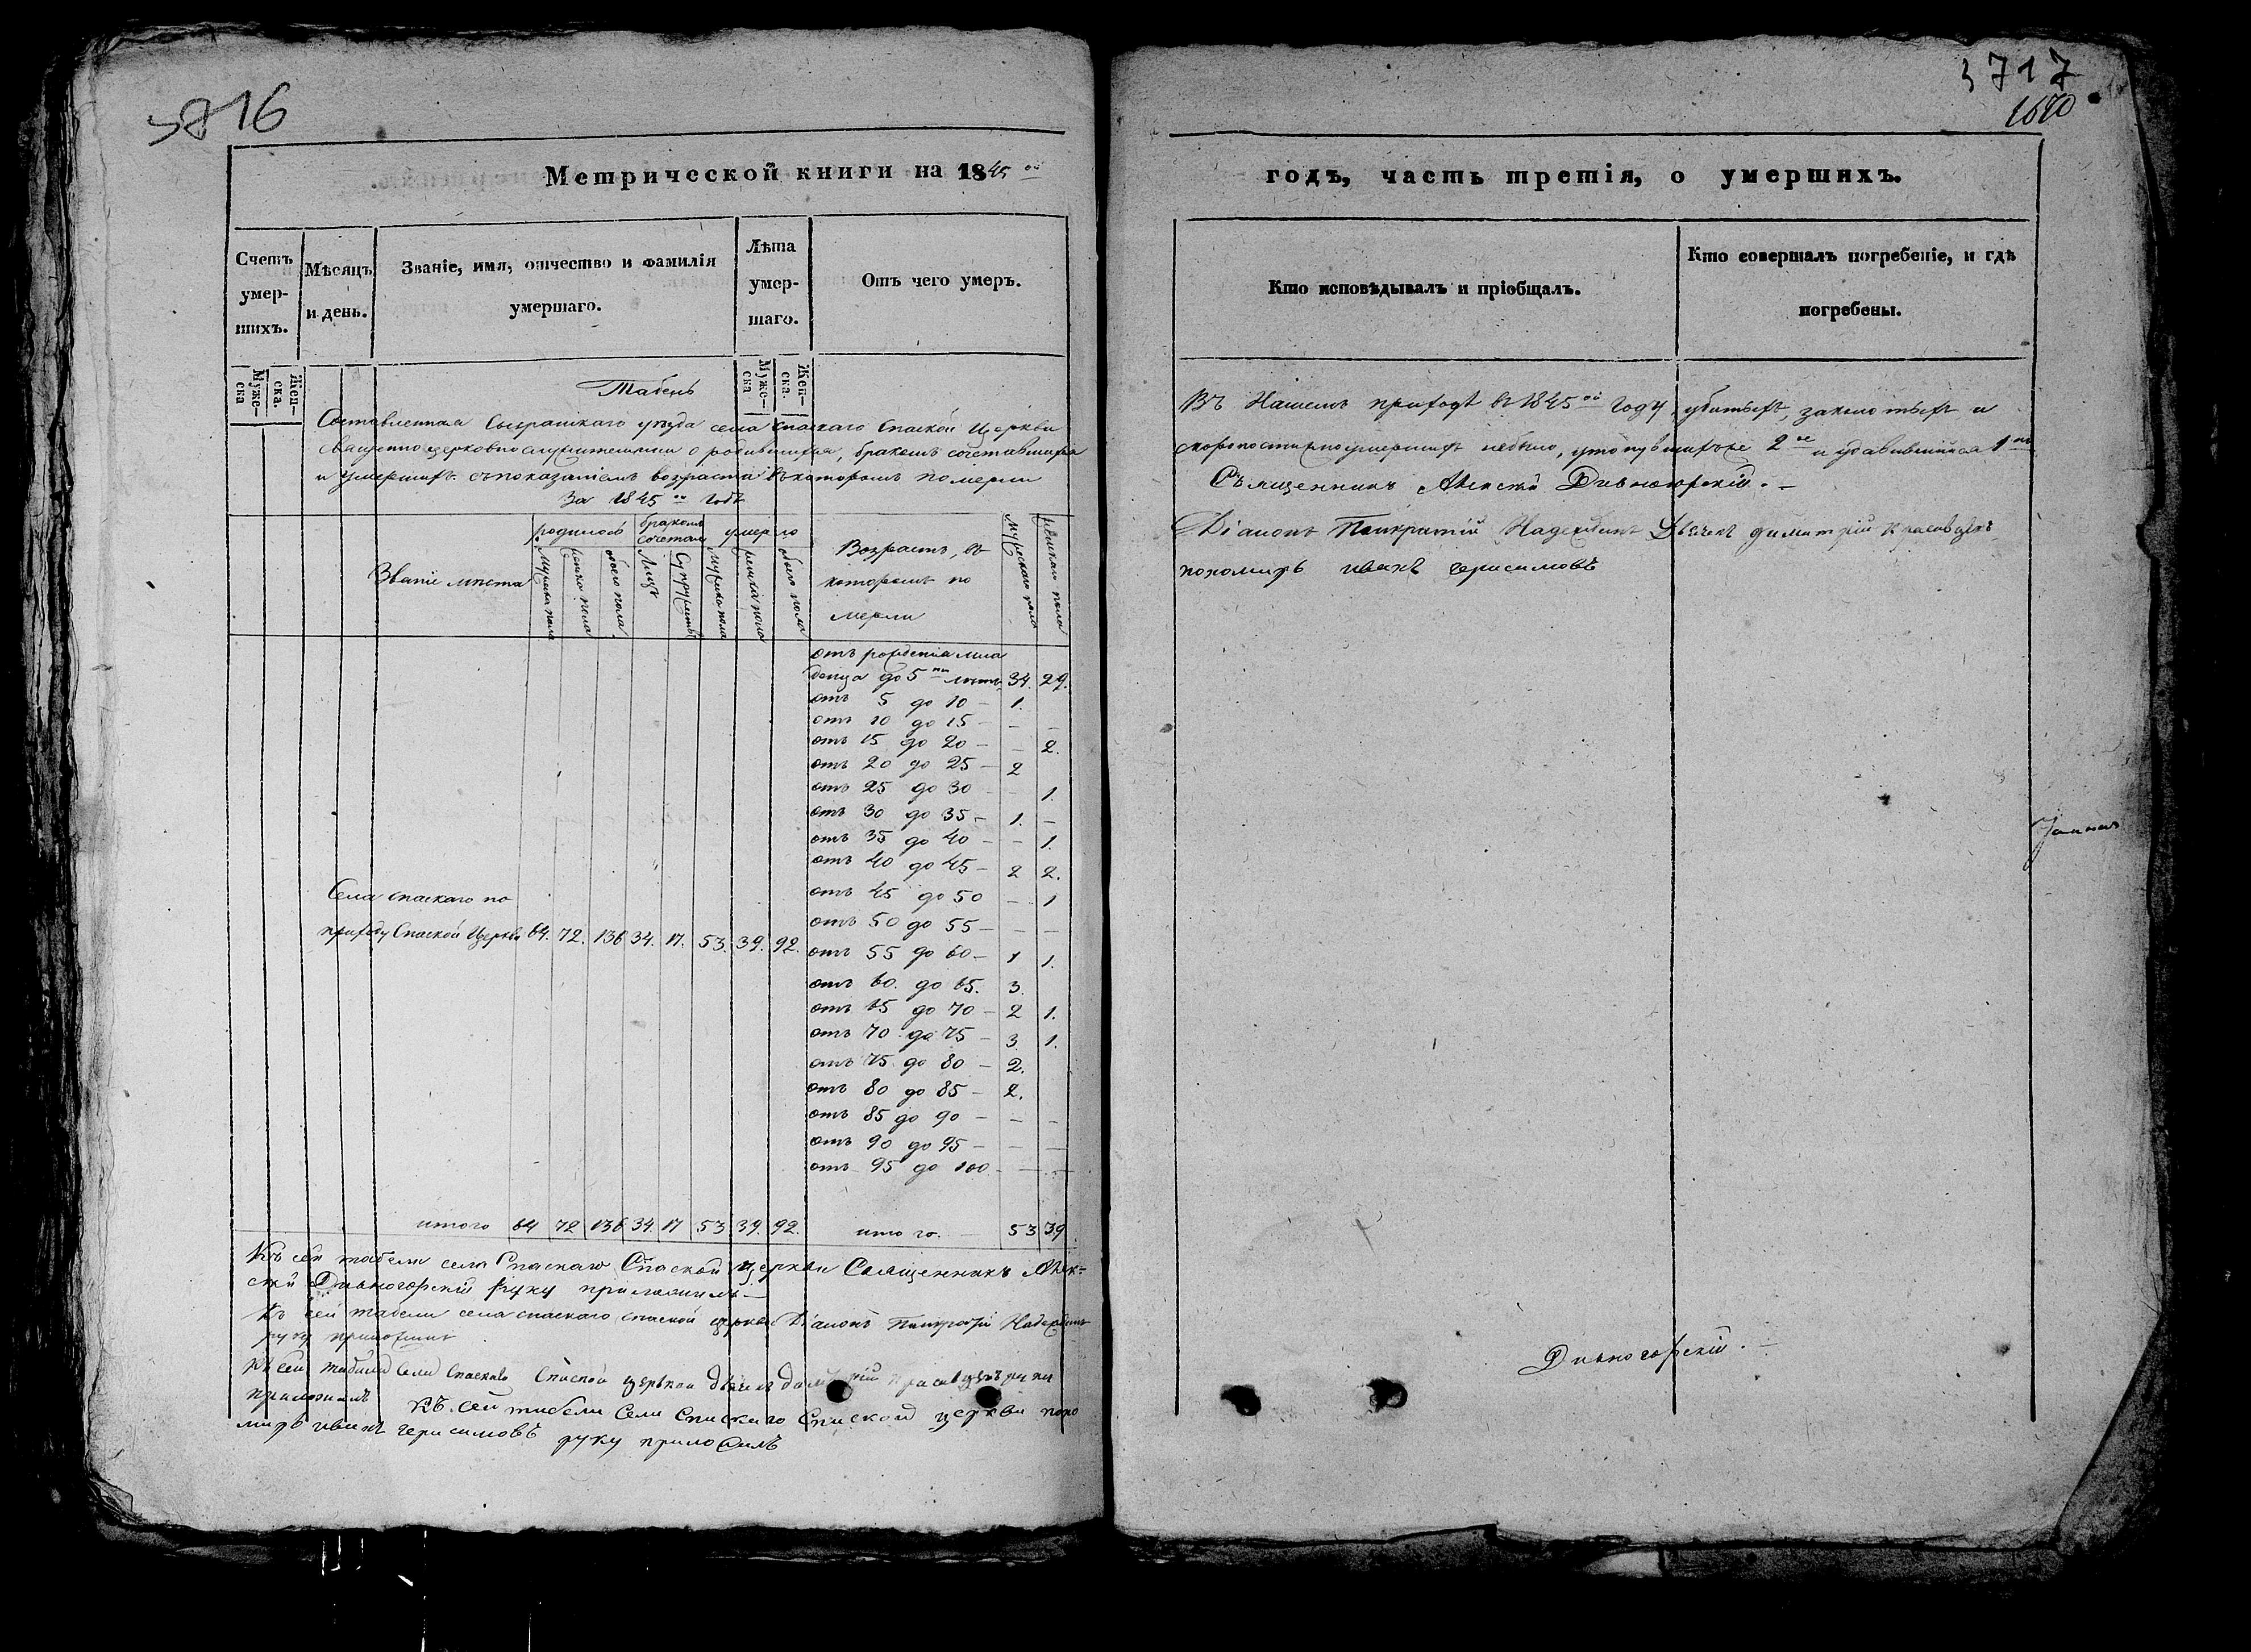 5816
Метрической книги на 1845 ой
Счетъ умер-шихъ.
Мѣсяцъ и день.
Званіе, имя, отчество и фамилія умершаго.
Лѣта умер-шаго.
Отъ чего умеръ.
Муже-ска
Жен-ска.
Муже-ска
Жен-ска.
Табель
Составленная Сызранскаго уѣзда села Спаскаго Спаской Церкви
священно церковнослужителями о родившихся, бракомъ сочетавшихся
и умершихъ съ показаніемъ возраста въ которомъ померли
За 1845 ой годъ
Званіе мѣста
родилось
бракомъ сочетано
умерло
Мужска пола
женска пола
обоего пола
Лицъ
Супружествъ
Мужска пола
женска пола
обоего пола
Возрастъ, въ
которомъ по
мерли
Мужскаго пола
женскаго пола
отъ рожденія мла
денца до 5 ти лѣтъ 34. 29.
отъ 5 до 10 – 1.
отъ 10 до 15 – – –
отъ 15 до 20 – – 2.
отъ 20 до 25 – 2
отъ 25 до 30 – – 1.
отъ 30 до 35 – 1. –
отъ 35 до 40 – – 1.
отъ 40 до 45 – 2 2.
отъ 45 до 50 – 1
отъ 50 до 55 – – –
отъ 55 до 60 – 1 1.
отъ 60. до 65. 3.
отъ 65 до 70 – 2 1.
отъ 70 до 75 – 3. 1.
отъ 75 до 80 – 2.
отъ 80 до 85 – 2.
отъ 85 до 90 – – –
отъ 90 до 95 – – –
отъ 95 до 100 – – –
Села Спаскаго по
приходу Спаской Церкви 64. 72. 136 34. 17. 53. 39. 92.
итого 64 72 136 34. 17 53 39. 92.
итого. 53 39
Къ сей табели села Спаскаго Спаской церкви Священникъ Алек=
сѣй Дивногорскій руку приложилъ –
Къ сей табели села Спаскаго Спаской церкви Діаконъ Панкратій Надеждинъ
руку приложилъ
Къ сей табели Села Спаскаго Спаской церкви дьячекъ руку
приложилъ Къ сей табели Села Спаскаго Спаской церкви поно
марь иванъ герасимовъ руку приложилъ
5717
1640
годъ, часть третія, о умершихъ.
Кто исповѣдывалъ и пріобщалъ.
Кто совершалъ погребеніе, и гдѣ погребены.
Въ Нашемъ приходѣ въ 1845 ой году, убитыхъ, заколотыхъ и
скоропостижно умершихъ небыло, утонувшихъ 2 ое и удавившійся 1 нъ
Священникъ Алексѣй Дивногорскій. –
Діаконъ Панкратій Надеждинъ Дьячекъ димитрій Красавцевъ
пономарь иванъ герасимовъ
Дивногорскій. –